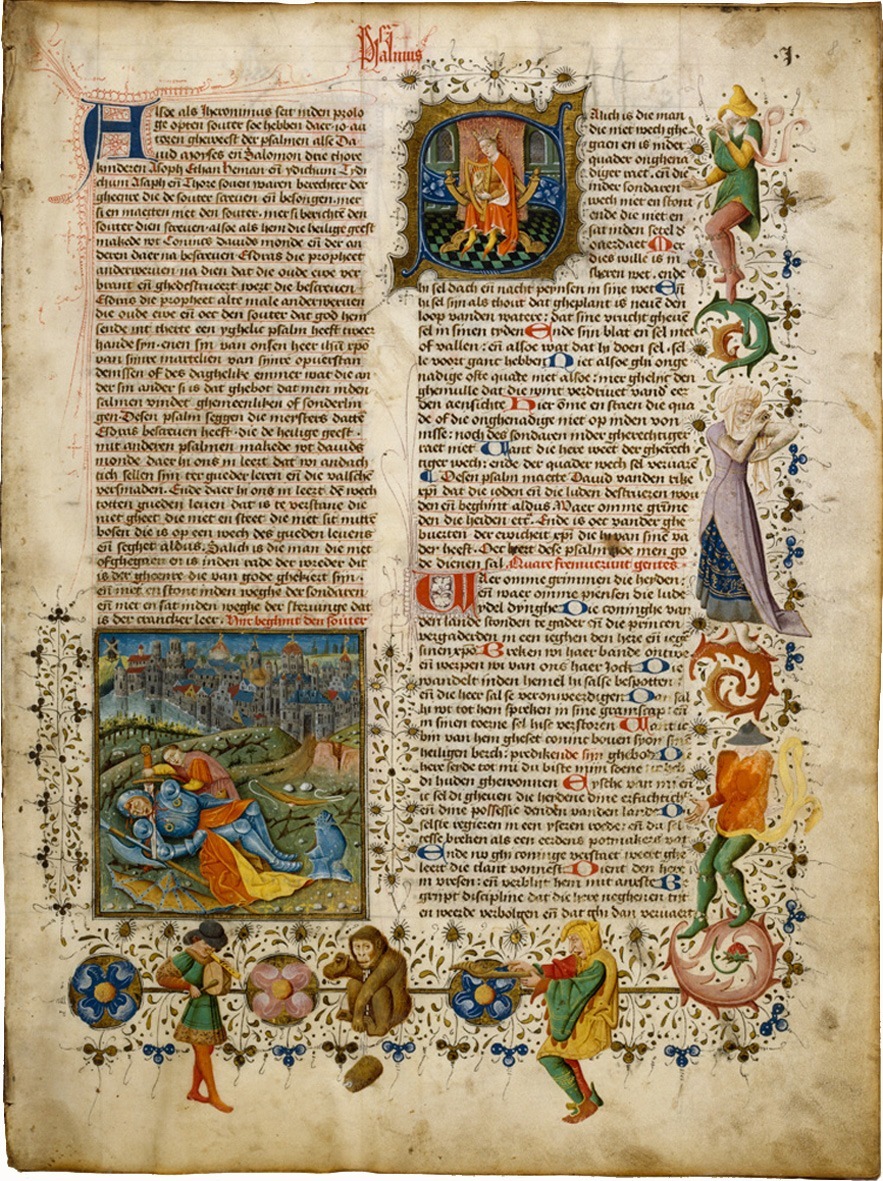 Psalmus
.I.
Alsoe als Iheronimus seit inden prolo
ge opten souter soe hebben daer .io. au
toren gheweest der psalmen alse Da
uid moyses en Salomon drie thore
kinderen Asoph Ethan heman eñ ydichum
souter dien screven. alsoe als hem die heilige geest
makede wt Conincs dauids monde eñ der an
deren daer na bescreven Esdras die propheet
anderwerven na dien dat die oude ewe ver
brant eñ ghedestrueert wert die bescreven
Esdras die propheet alte male anderwerven
die oude ewe eñ oec den souter dat god hem
sende int herte een yghelic psalm heeft tweer
hande syn. enen syn van onsen heer ihū xpō
van synre martelien van synre opuerstan
denissen of des daghelike emmer wat die an
der sin ander si is dat ghebot dat men inden
salmen vindet ghemeenliken of sonderlin
gen Desen psalm seggen die meesters datte
Esdras bescreven heeft . die de heilige geest .
mit anderen psalmen makede wt dauids
monde daer hi ons in leert dat wi andach
tich sellen syn ter gueder leren eñ die valsche
versmaden. Ende daer hi ons in leert den wech
totten gueden leven dat is te verstane die
niet gheet die niet en steet die niet sit mitten
bosen die is op een wech des gueden levens
eñ seghet aldus. Salich is die man die niet
of ghegaen er is inden rade der wreder dit
is der gheenre die van gode ghekiert syn .
eñ niet en stont inden weghe der sondaren
eñ niet en sat inden weghe der steringe dat
is der crancker leer. Hier beghint den souter
Salich is die man
die niet wech ghe
gaen en is inder
quader onghena
diger raet. eñ die
inder sondaren
wech niet en stont
ende die niet en
sat inden setel d
quaetdaet Mer
dies wille is in
sheren wet. ende
hi sel dach en nacht peynsen in sine wet Eñ
hi sel syn als thout dat gheplant is neuē den
loop vanden watere : dat sine vrucht gheuē
sel in sinen tyden Ende syn blat en sel niet
of vallen : eñ alsoe wat dat hi doen sel . sel
le voort gant hebben Niet alsoe ghi onge
nadige ofte quade niet alsoe : mer ghelyc den
ghemulle dat die wint verdrivet vand eer
den aensichte Hier ōme en staen die qua
de of die onghenadige niet op inden von
nisse : noch des sondaren inder gherechtiger
raet niet Want die here weet der gherech
tiger wech : ende der quader wech sel vervarē
Desen psalm maecte Dauid vanden rike
xpī dat die ioden eñ die luden destrueren wou
den eñ beghint aldus. Waer omme grime
den die heiden etc̄. Ende is oec vander ghe
buerten der ewicheit xpī die hi van sine va
der heeft. Oec leert dese psalm hoe men go
de dienen sal. Quare fremuerunt gentes .
Waer omme grimmen die heyden :
eñ waer omme piensen die lude
ydel dynghe Die coninghe van
den lande stonden te gader eñ die princen
vergaderden in een ieghen den here eñ iegē
sinen xpō Breken wi haer bande ontwe
eñ werpen wi van ons haer Jock Die
wandelt inden hemel hi salse bespotten :
eñ die heer sal se veronweerdigen Dan sal
hi wt tot hem spreken in sine gramscap : eñ
in sinen toerne sel hise verstoren Want ic
bin van hem gheset coninc boven syon sinē
heiligen berch : predikende syn ghebot Die
here seide tot mi du biste mijn soene
di huden ghewonnen Eysche van mi eñ
ic sel di gheven die heydene dine erfachtich
eñ dine possessie deinden vanden lande Du
selste regieren in een yseren roede : eñ du sel
tesse breken als een eerdens potmakers vat
Ende nu ghi coninge verstaet weert ghe
leert die tlant vonnest Dient den here
in vresen : eñ verblijt hem mit anxste Be
gript discipline dat die here negheenen tijt
en weerde verbolgen eñ dat ghi dan vervaert